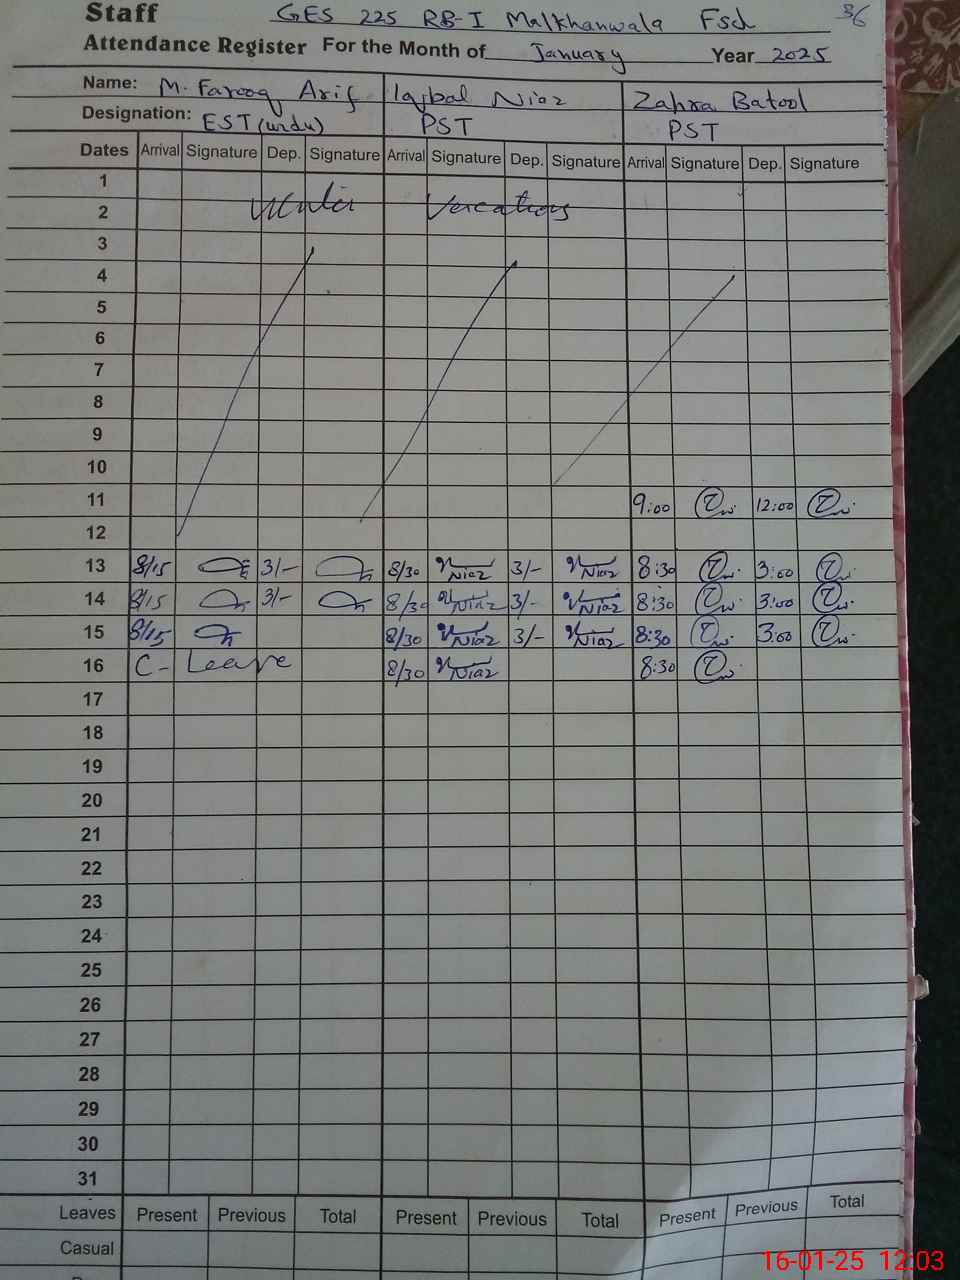 Staff GES 225 RB-I Malkhanwala Fsd 36
Attendance Register For the Month of January Year 2025
Name: M. Farooq Arif Iqbal Niaz Zahra Batool
Designation: EST (urdu) PST PST
Dates Arrival Signature Dep. Signature Arrival Signature Dep. Signature Arrival Signature Dep. Signature
1
2 Winter Vacations
3
4
5
6
7
8
9
10
11 9:00 12:00
12
13 8/15 3/- 8/30 Niaz 3/- Niaz 8:30 3:00
14 8/15 3/- 8/30 Niaz 3/- Niaz 8:30 3:00
15 8/15 8/30 Niaz 3/- Niaz 8:30 3:00
16 C- Leave 8/30 Niaz 8:30
17
18
19
20
21
22
23
24
25
26
27
28
29
30
31
Leaves Present Previous Total Present Previous Total Present Previous Total
Casual
16-01-25 12:03